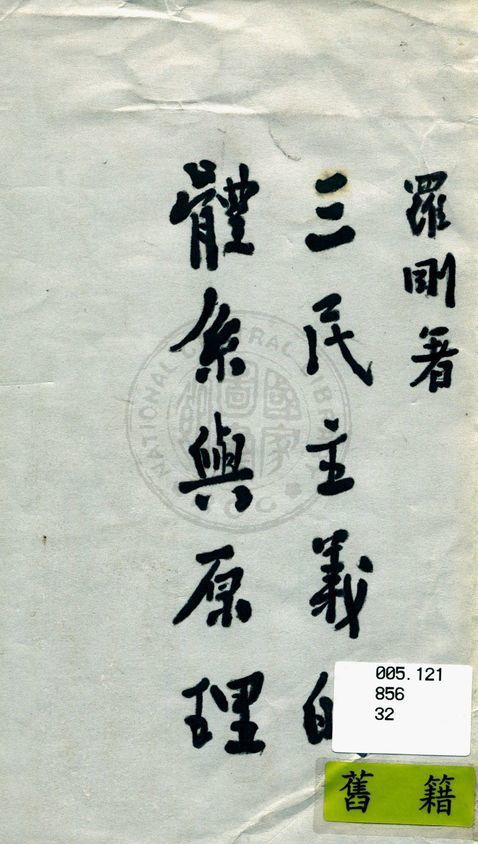 羅剛著
三民主義的
體系與原理
005.121
856
32
舊籍
NATIONAL CENTRAL LIBRARY